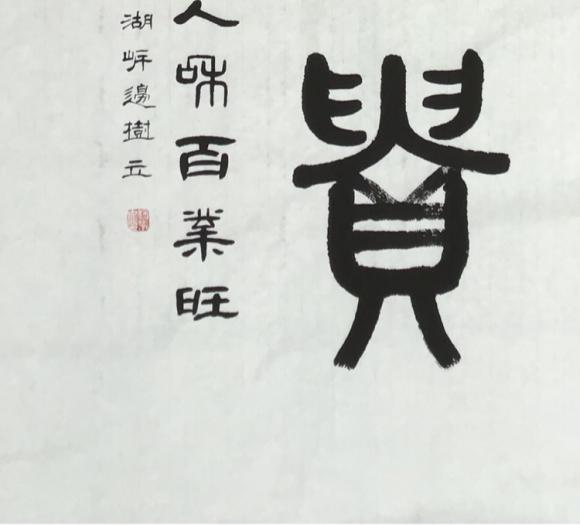 貴
人和百業旺
湖 邊樹立